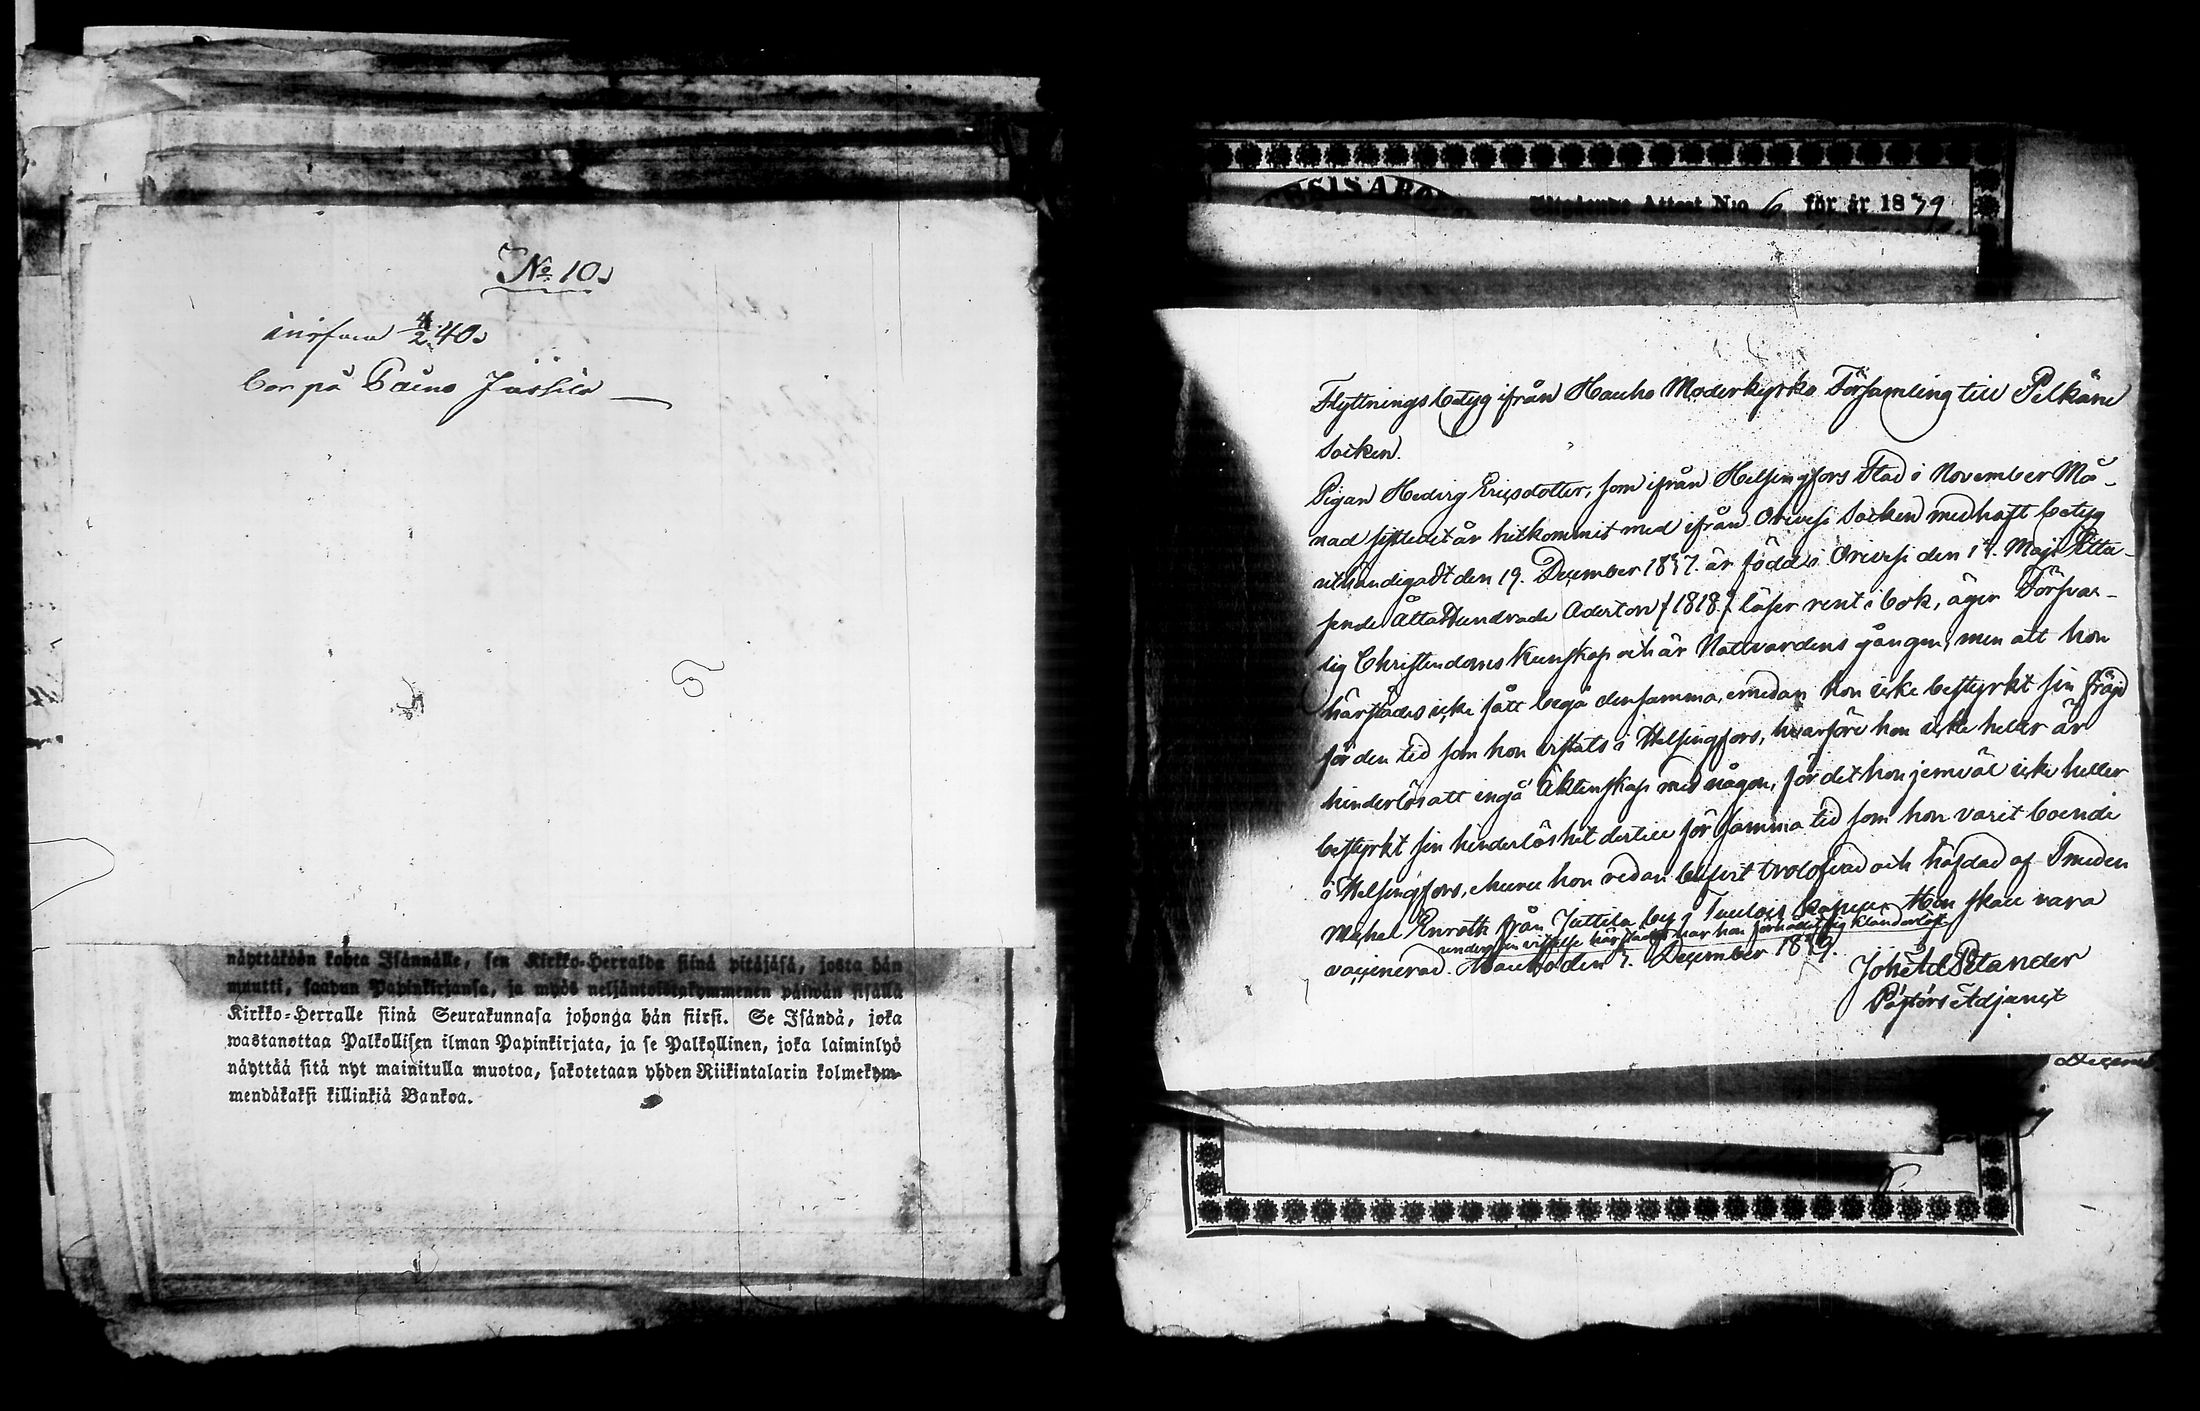 No 10.
införd 4/2 40.
bor på Paino Jussila
näyttäkään kohta Isännälle, sen Kirkko-Herralda siinä pitäjäsä, josta hän
muutti, saadun Papinkirjansa, ja myös neljäntoistakymmenen päiwän sisällä
Kirkko-Herralle siinä Seurakunnasa johonga hän siirsi. Se Isändä, joka
wastanottaa Palkollisen ilman Papinkirjata, ja se Palkollinen, joka laiminlyö
näyttää sitä nyt mainitulla muotoa, sakotetaan yhden Riikintalarin kolmekym-
mendäkaksi killinkiä Bankoa.
Attest N:o 6 för år 1839
Flyttningsbetyg ifrån Hauho Moderkyrko Församling till Pelkäne
Socken.
Pigan Hedvig Ericsdotter, som ifrån Helsingfors Stad i November Må-
nad sistledit år hitkommit med ifrån Orivesi Socken medhaft betyg
uthändigadt den 19. December 1837. är född i Orivesi den 14. Maji Etta-
sende Åttahundrade Aderton /1818./ läser rent i bok, äger Försvar-
lig Christendoms kunskap och är Nattvardens gången, men att hon
härstädes icke fått begå densamma, emedan hon icke bestyrkt sin frägd
för den tid som hon vistats i Helsingfors, hvarföre hon icke heller är
hinderlös att ingå Äktenskap med någon, för det hon jemväl icke heller
bestyrkt sin hinderlöshet dertill för samma tid som hon varit boende
i Helsingfors, ehuru hon redan blifvit trolofvad och häfdad af Smeden
Michel Enroth från Juttila by i Tuulois Kapell. Hon skall vara
under sin vistelse härstädes har hon förhållit sig klanderlöst
vaccinerad. Hauho den 7. December 1839.
Joh. Ad. Petander
Pastors Adjunct
Decemb